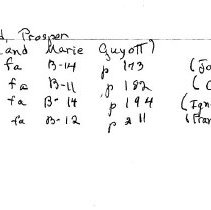 d, Prosper
and Marie Guyott)
fa B-14 p 173 (Jo
fa B-11 p 182 (C
fa B-14 p 194 (Ign
fa B-12 p 211 (Fran